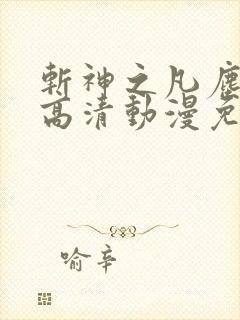 斬神之凡塵
高清動漫免
喻辛